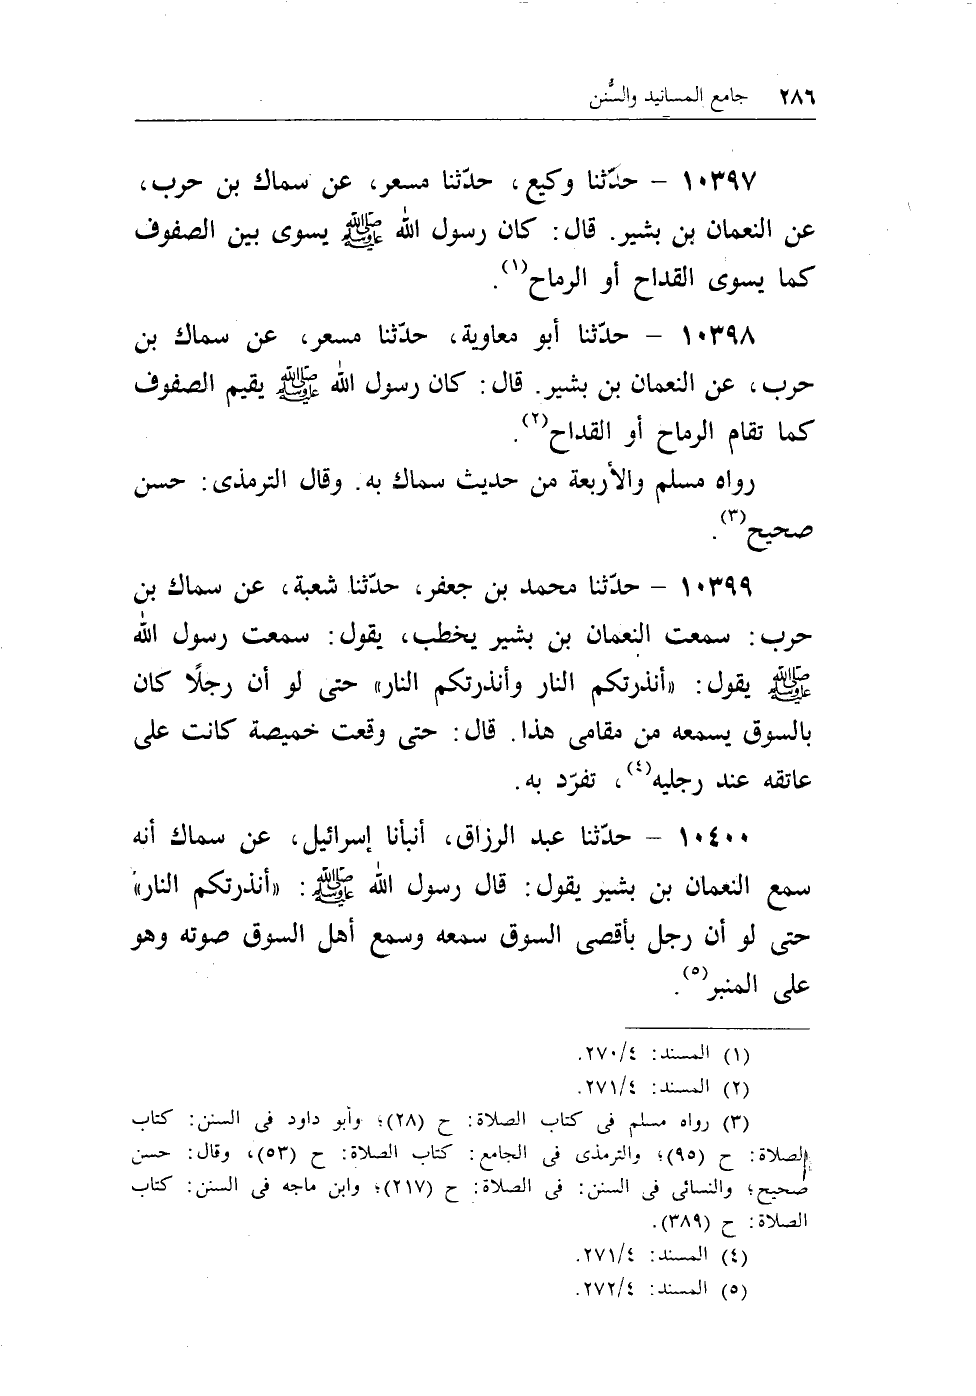 ٢٨٦ جامع المسانيد والسُّنن
١٠٣٩٧ – حدّثنا وكيع، حدّثنا مسعر، عن سماك بن حرب،
عن النعمان بن بشير. قال: كان رسول الله ﷺ يسوى بين الصفوف
كما يسوى القداح أو الرماح(١).
١٠٣٩٨ – حدّثنا أبو معاوية، حدّثنا مسعر، عن سماك بن
حرب، عن النعمان بن بشير. قال: كان رسول الله ﷺ يقيم الصفوف
كما تقام الرماح أو القداح(٢).
رواه مسلم والأربعة من حديث سماك به. وقال الترمذى: حسن
صحيح(٣).
١٠٣٩٩ – حدّثنا محمد بن جعفر، حدّثنا شعبة، عن سماك بن
حرب: سمعت النعمان بن بشير يخطب، يقول: سمعت رسول الله
ﷺ يقول: «أنذرتكم النار وأنذرتكم النار» حتى لو أن رجلًا كان
بالسوق يسمعه من مقامى هذا. قال: حتى وقعت خميصة كانت على
عاتقه عند رجليه(٤)، تفرّد به.
١٠٤٠٠ – حدّثنا عبد الرزاق، أنبأنا إسرائيل، عن سماك أنه
سمع النعمان بن بشير يقول: قال رسول الله ﷺ: «أنذرتكم النار»
حتى لو أن رجل بأقصى السوق سمعه وسمع أهل السوق صوته وهو
على المنبر(٥).
(١) المسند: ٢٧٠/٤.
(٢) المسند: ٢٧١/٤.
(٣) رواه مسلم فى كتاب الصلاة: ح (٢٨)؛ وأبو داود فى السنن: كتاب
الصلاة: ح (٩٥)؛ والترمذى فى الجامع: كتاب الصلاة: ح (٥٣)، وقال: حسن
صحيح؛ والنسائى فى السنن: فى الصلاة: ح (٢١٧)؛ وابن ماجه فى السنن: كتاب
الصلاة: ح (٣٨٩).
(٤) المسند: ٢٧١/٤.
(٥) المسند: ٢٧٢/٤.